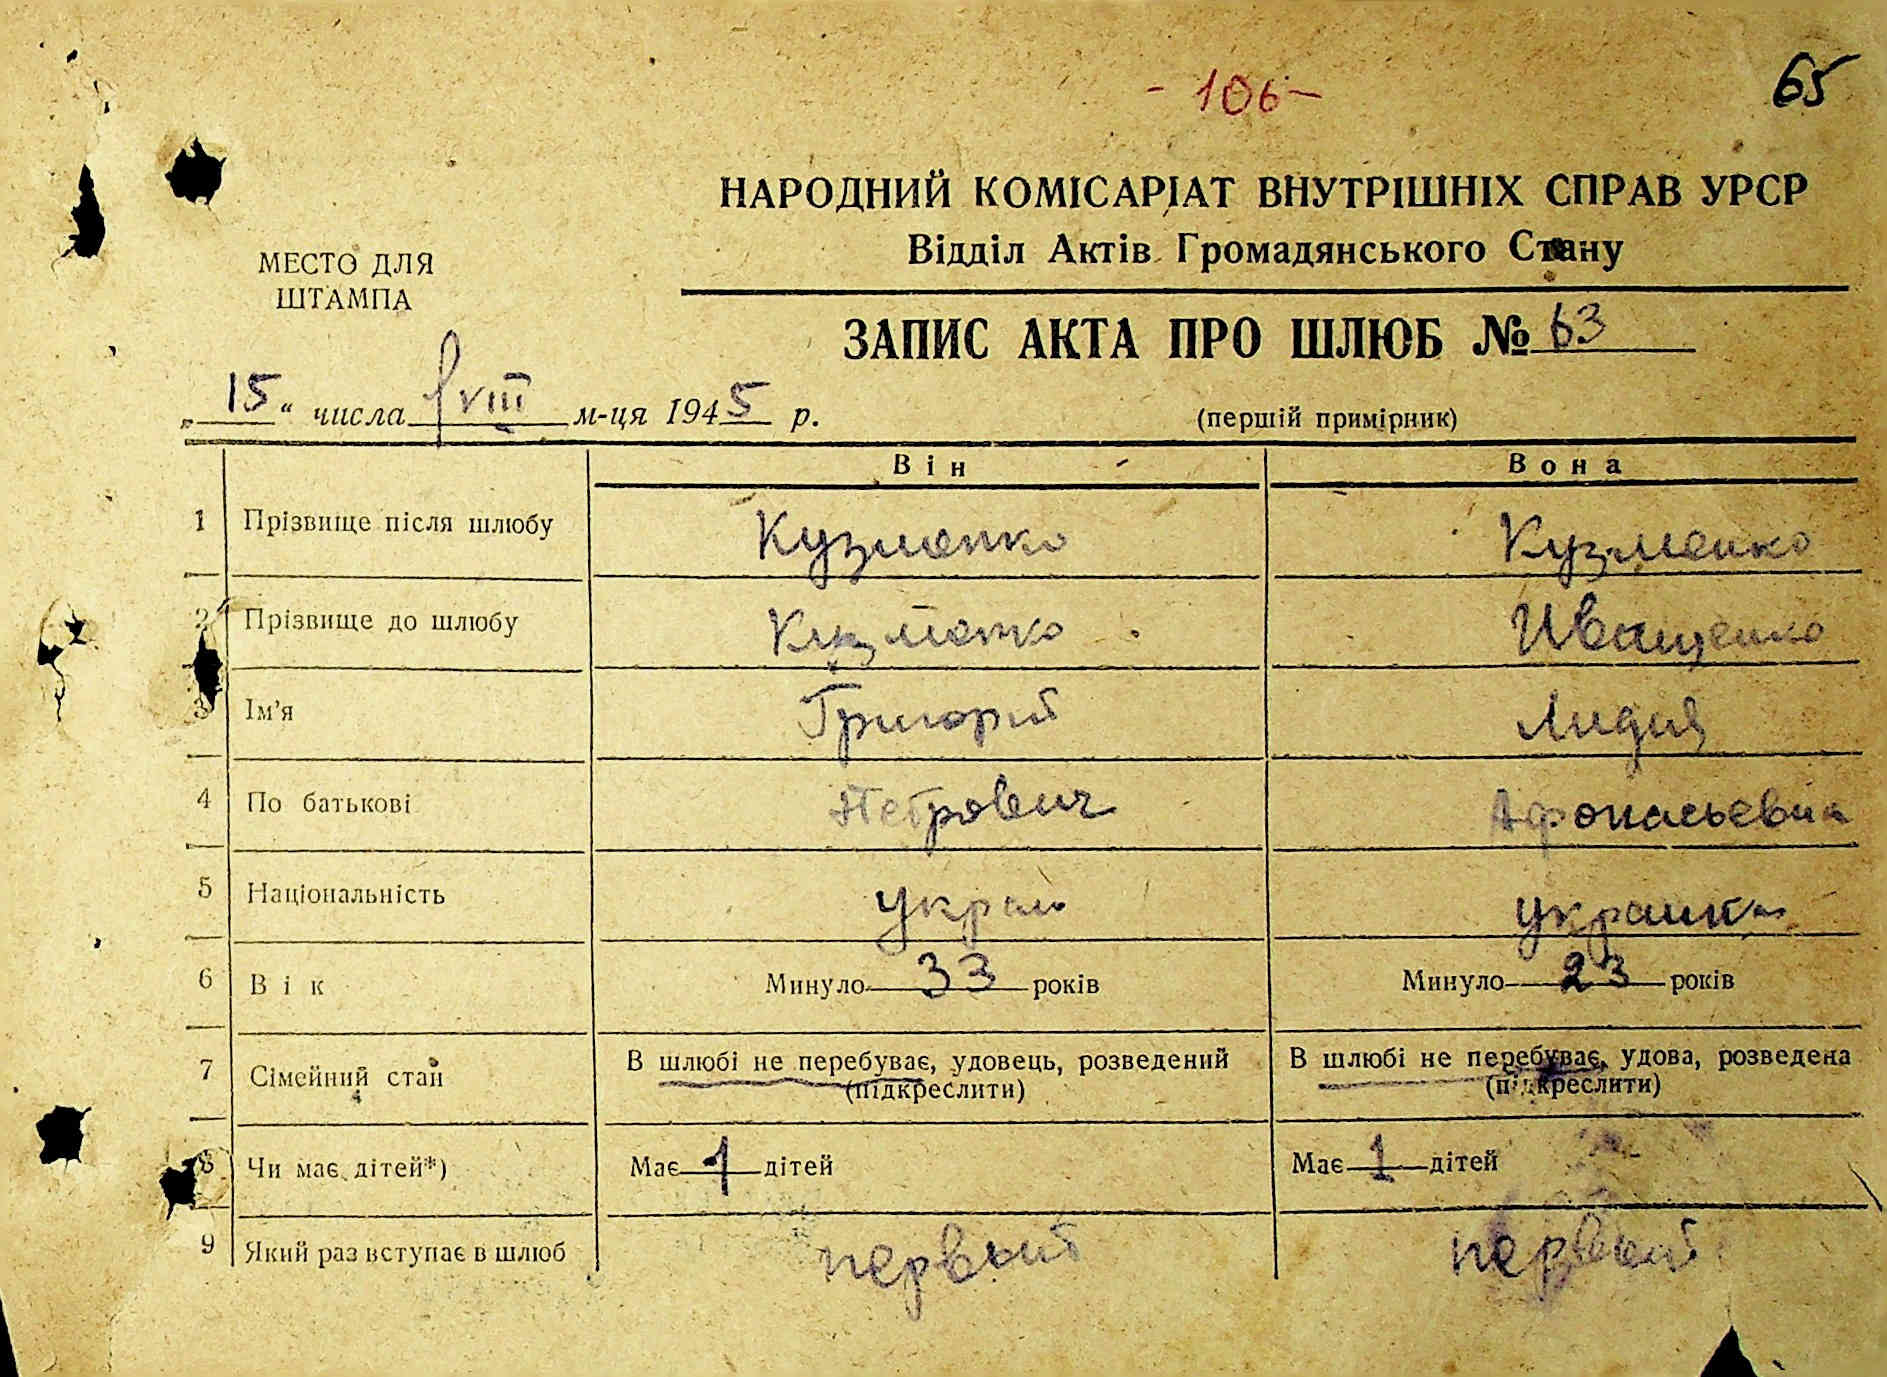 - 106 -
65
НАРОДНИЙ КОМІСАРІАТ ВНУТРІШНІХ СПРАВ УРСР
Відділ Актів Громадянського Стану
МЕСТО ДЛЯ
ШТАМПА
ЗАПИС АКТА ПРО ШЛЮБ № 63
„15“ числа VIII м-ця 1945 р.
(першій примірник)
Він Вона
1 Прізвище після шлюбу Кузменко Кузменко
2 Прізвище до шлюбу Кузменко Иващенко
3 Ім’я Григорий Лидия
4 По батькові Петрович Афонасьевна
5 Національність украин украинка
6 Вік Минуло 33 років Минуло 23 років
7 Сімейний стан В шлюбі не перебуває, удовець, розведений В шлюбі не перебуває, удова, розведена
(підкреслити) (підкреслити)
8 Чи має дітей*) Має 1 дітей Має 1 дітей
9 Який раз вступає в шлюб первый первый